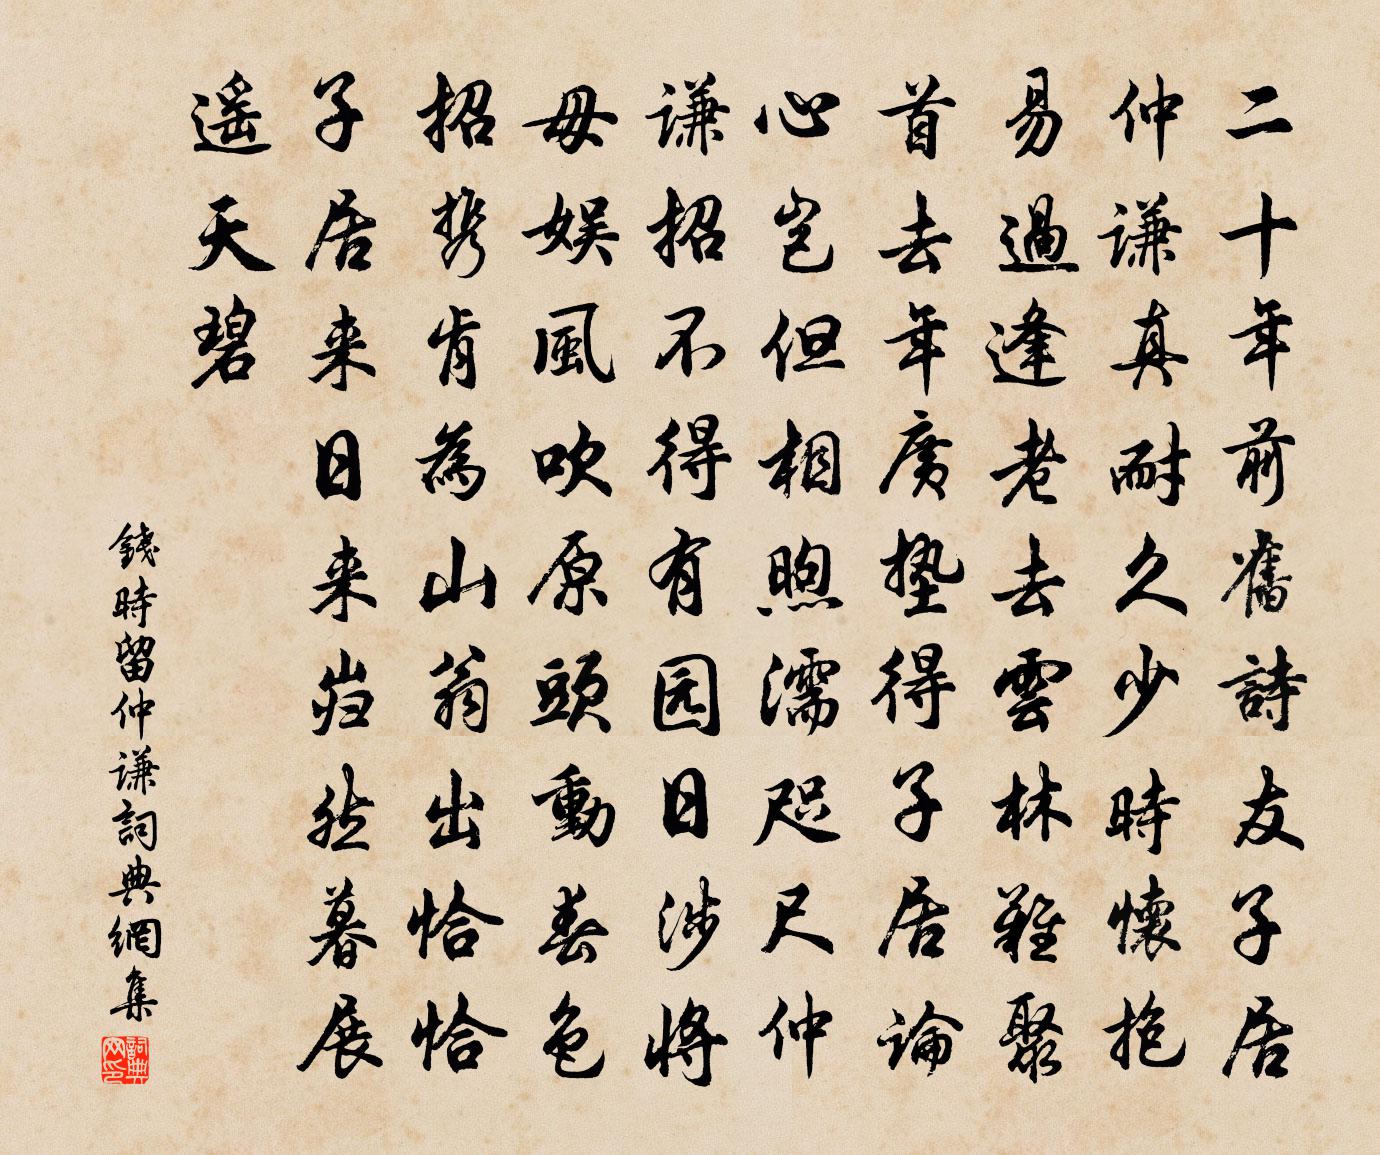 二十年前舊詩友子居
仲谦真耐久少時懷抱
易過逢老去雲林難聚
首去年廣墊得子居論
心岂但相煦濡咫尺仲
谦招不得有园日涉將
毋娱風吹原頭動春色
招携肯為山翁出恰恰
子居来日来岿然暮展
遥天碧
錢時留仲谦詞典網集
詞典网印